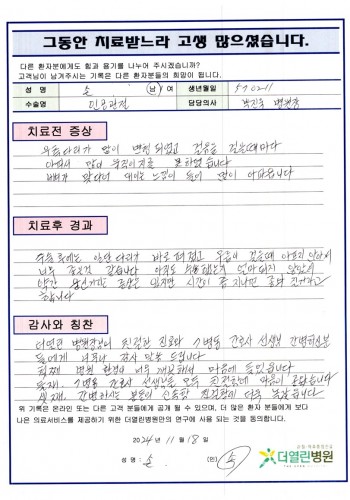 그동안 치료받느라 고생 많으셨습니다.
다른 환자분에게도 힘과 용기를 나누어 주시겠습니까?
고객님이 남겨주시는 기록은 다른 환자분들의 희망이 됩니다.
성 명 손 남/여 생년월일 570211
수술명 인공관절 담당의사 박진욱 병원장
치료전 증상
무릎 다리가 많이 변형 되었고 걸음을 걸을때마다
아파서 많이 움직이지를 못하였습니다
뼈가 닿는 느낌이 들어 많이 아파했습니다
치료후 경과
수술 후에는 다리가 바로 펴졌고 무릎이 걸을때 아프지 않아서
너무 좋은것 같습니다 아직도 수술했는지 얼마되지 않았지
약간 통증은 있지만 시간이 좀 지나면 좋아 진거라고
합니다
감사와 칭찬
더열린 병원장님의 친절한 진료와 7병동 간호사 선생님 간병하신분
들에게 너무나 감사 말씀 드립니다
첫째 병원 환경이 너무 깨끗해서 마음에 들었습니다
둘째. 7병동 간호사 선생님들 모두 친절한데 마음이 끌렸습니다
셋째. 간병하시는 분들이
위 기록은 온라인 또는 다른 고객 분들에게 공개 될 수 있으며, 더 많은 환자 분들에게 보다
나은 의료서비스를 제공하기 위한 더열린병원만의 연구에 사용 되는 것을 동의합니다.
2024년 11월 18일
성 명 : 손 (인) 손
더열린병원